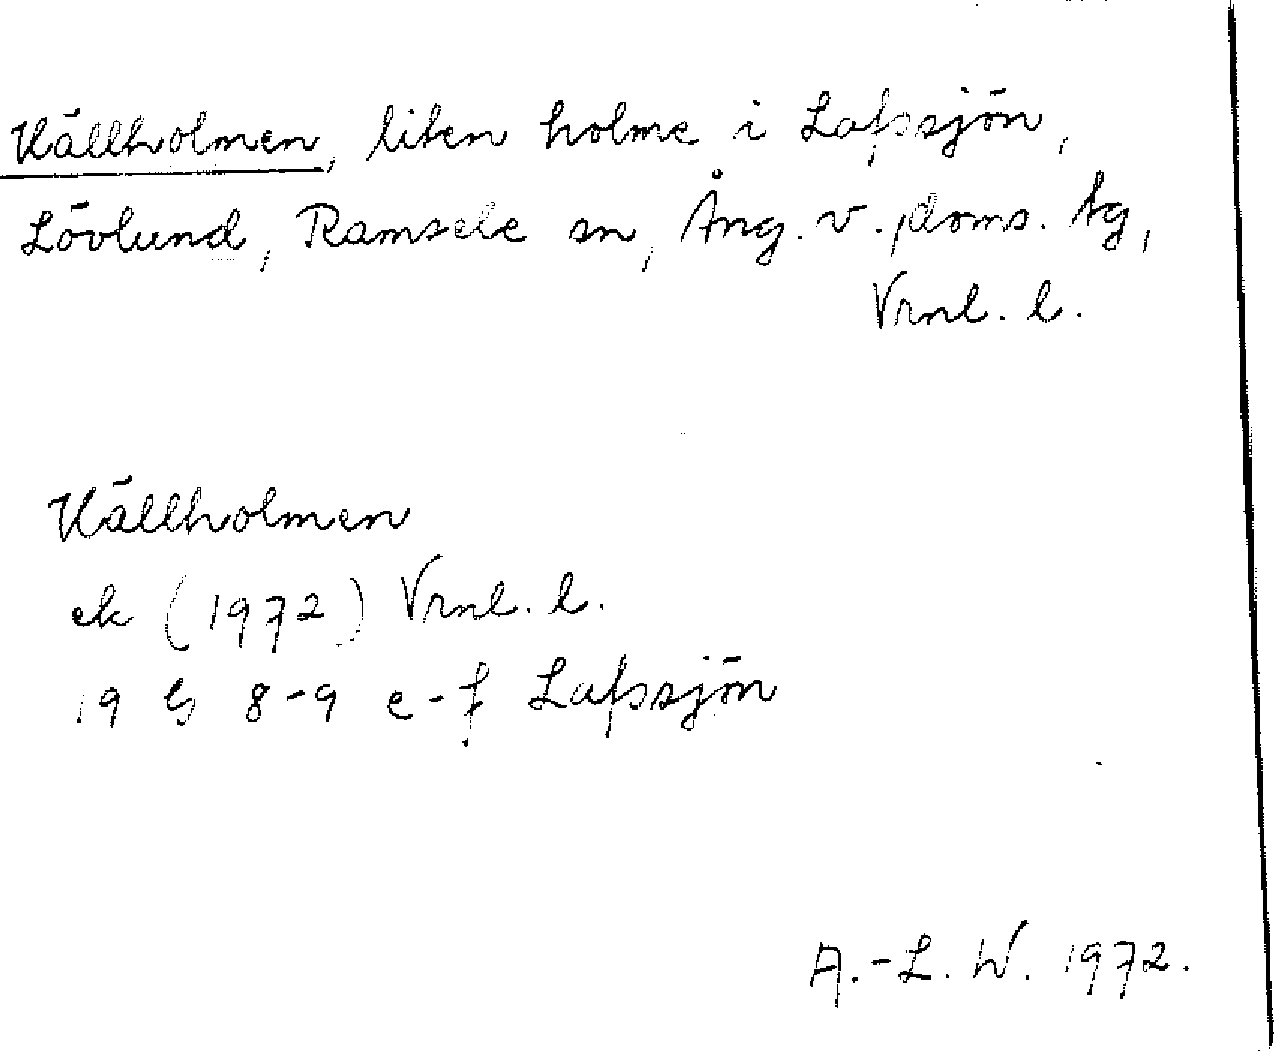 Källholmen, liten holme i Lafssjön,
Lövlund, Ramsele sn, Ång. v. doms. tg,
Vrnl. l.
Källholmen
ek (1972) Vrnl. l.
19 G 8-9 e-f Lafssjön
A.-L. W. 1972.